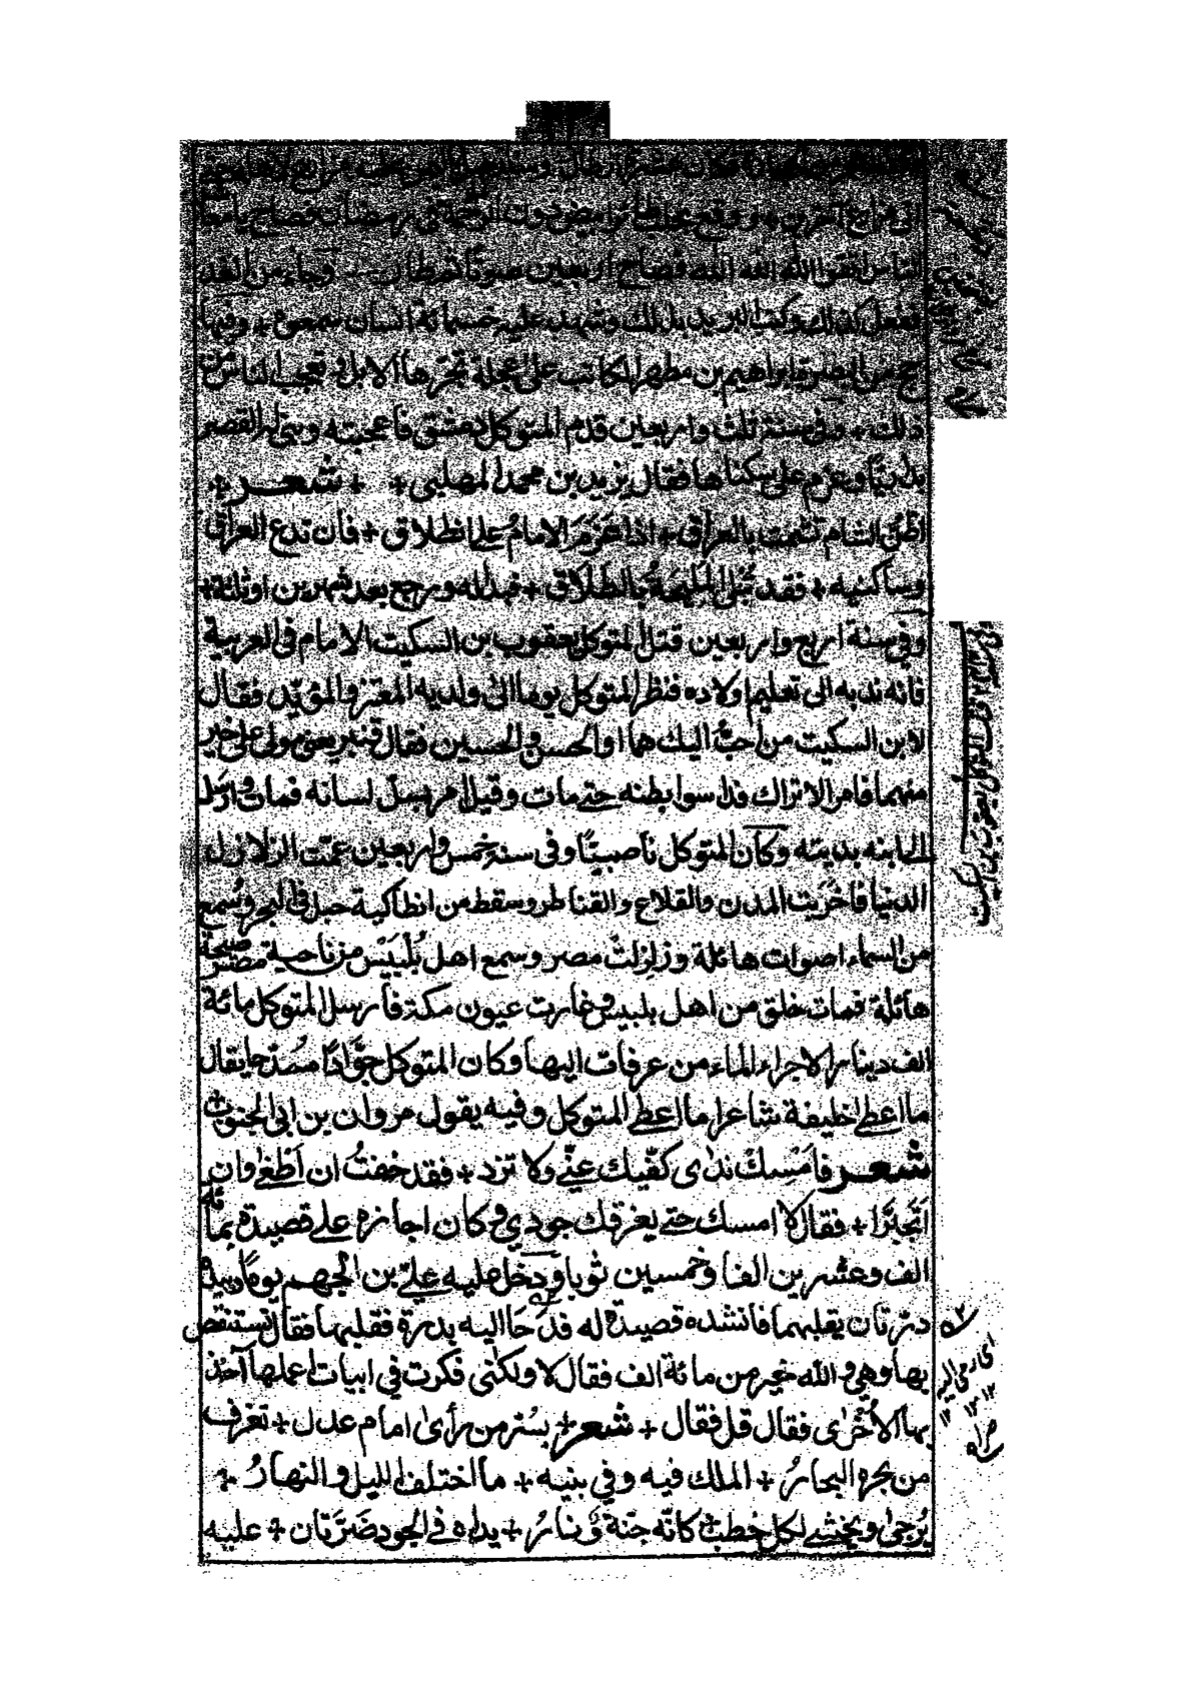 الى مزارع آخرين ووقع بحلب طائر ابيض دون الرخمة في رمضان فصاح يا معاشر
الناس اتقوا الله الله الله فصاح اربعين صوتا ثم طار وجاء من الغد
ففعل كذلك وكتب البريد بذلك وشهد عليه خمسمائة انسان سمعوه + وفيها
حج من البصرة ابراهيم بن مطهر الكاتب على عجلة تجرها الابل وتعجب الناس من
ذلك + وفي سنة ثلث واربعين قدم المتوكل دمشق فاعجبته وبنى له القصر
بداريا وعزم على سكناها فقال يزيد بن محمد المهلبي + + شعر +
اظن الشام تشمت بالعراق + اذا عزم الامام على انطلاق + فان تدع العراق
وساكنيه + فقد تبلى المليحة بالطلاق + فبدا له ورجع بعد شهرين او ثلثة +
وفي سنة اربع واربعين قتل المتوكل يعقوب بن السكيت الامام في العربية
فانه ندبه الى تعليم اولاده فنظر المتوكل يوما الى ولديه المعتز والمؤيد فقال
لابن السكيت من احب اليك هما او الحسن والحسين فقال قنبر يعني مولى علي خير
منهما فامر الاتراك فداسوا بطنه حتى مات وقيل امر بسل لسانه فمات وارسل
الى ابنه بديته وكان المتوكل ناصبيا وفي سنة خمس واربعين عمت الزلازل
الدنيا فاخربت المدن والقلاع والقناطر وسقط من انطاكية جبل في البحر وسمع
من السماء اصوات هائلة وزلزلت مصر وسمع اهل بلبيس من ناحية مصر صيحة
هائلة فمات خلق من اهل بلبيس وغارت عيون مكة فارسل المتوكل مائة
الف دينار لاجراء الماء من عرفات اليها وكان المتوكل جوادا ممدحا يقال
ما اعطى خليفة شاعرا ما اعطى المتوكل وفيه يقول مروان بن ابى الجنوب +
شعر فامسك ندى كفيك عني ولا تزد + فقد خفت ان اطغى وان
اتجبرا + فقال لا امسك حتى يغرقك جودي وكان اجازه على قصيدة بمائة
الف وعشرين الفا وخمسين ثوبا ودخل عليه علي بن الجهم يوما وبيده
درتان يقلبهما فانشده قصيدة له فدحا اليه بدرة فقلبها فقال تستنقص
بها وهي والله خير من مائة الف فقال لا ولكني فكرت في ابيات اعملها آخذ
بها الاخرى فقال قل فقال + شعر + بسر من رأى امام عدل + تغرف
من بحره البحار + الملك فيه وفي بنيه + ما اختلف الليل والنهار +
يرجى ويخشى لكل خطب + كانه جنة ونار + يداه في الجود ضرتان + عليه
اي رمى اليه
١٢ ١٢